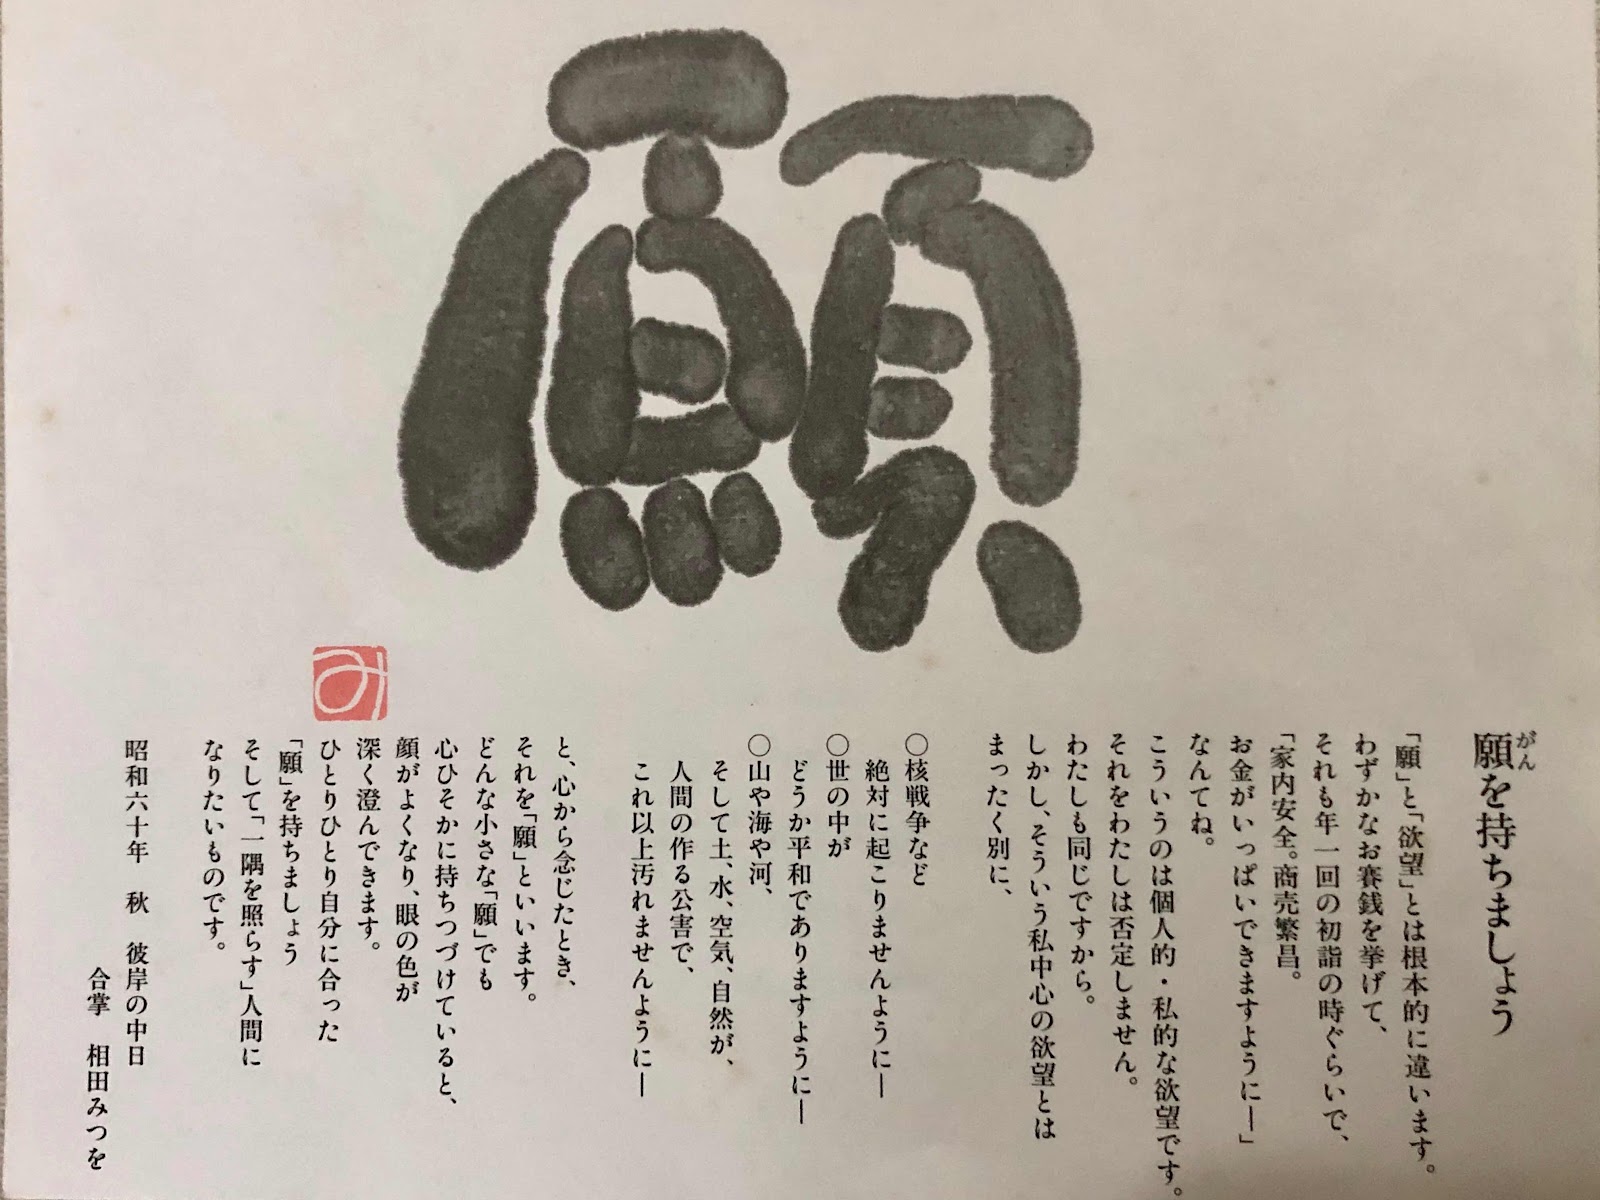 願
み
願を持ちましょう
がん
「願」と「欲望」とは根本的に違います。
わずかなお賽銭を挙げて、
それも年一回の初詣の時ぐらいで、
「家内安全。商売繁昌。
お金がいっぱいできますように―」
なんてね。
こういうのは個人的・私的な欲望です。
それをわたしは否定しません。
わたしも同じですから。
しかし、そういう私中心の欲望とは
まったく別に、
○核戦争など
絶対に起こりませんように―
○世の中が
どうか平和でありますように―
○山や海や河、
そして土、水、空気、自然が、
人間の作る公害で、
これ以上汚れませんように―
と、心から念じたとき、
それを「願」といいます。
どんな小さな「願」でも
心ひそかに持ちつづけていると、
顔がよくなり、眼の色が
深く澄んできます。
ひとりひとり自分に合った
「願」を持ちましょう
そして「一隅を照らす」人間に
なりたいものです。
昭和六十年 秋 彼岸の中日
合掌 相田みつを